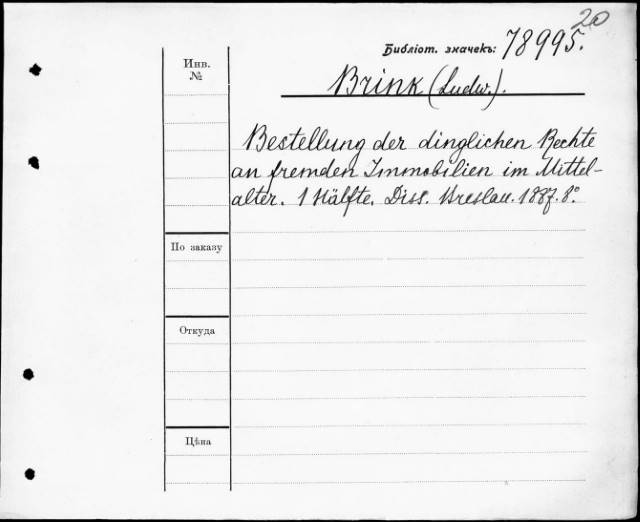 20
Библіот. значекъ: 78995.
Инв.
№
Brink (Ludw.).
Bestellung der dinglichen Rechte
an fremden Immobilien im Mittel-
alter. 1 Hälfte. Diss. Breslau. 1887. 8°.
По заказу
Откуда
Цѣна